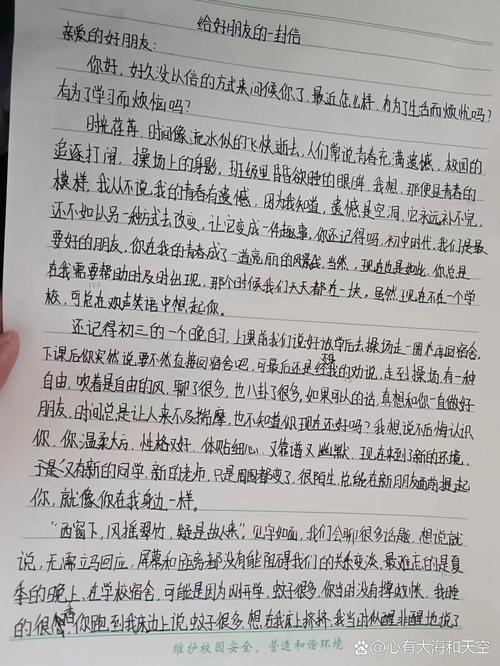 给好朋友的一封信
亲爱的好朋友:
你好,好久没以信的方式来问候你了,最近怎么样,有为了生活而烦忧吗?
有为了学习而烦恼吗?
时光荏苒,时间像流水似的飞快逝去,人们常说青春充满遗憾,校园的
追逐打闹,操场上的身影,班级里昏昏欲睡的眼眸,我想,那便是青春的
模样,我从不说我的青春有遗憾,因为我知道,遗憾是空洞,它永远补不完,
还不如从另一种方式去改变,让它变成一件趣事,你还记得吗,初中时代,我们是最
要好的朋友,你在我的青春成了一道亮丽的风景线,当然,现在也是如此,你总是
在我需要帮助时及时出现,那个时候我们天天都在一块,虽然现在不在一个学
校,可总在欢声笑语中想起你。
还记得初三的一个晚自习,上课前我们说好放学后去操场走一圈再回宿舍,
下课后你突然说要不然直接回宿舍吧,可最后还是经我的劝说,走到操场,有一种
自由,吹着是自由的风,聊了很多,也八卦了很多,如果可以的话,真想和你一直做好
朋友,时间总是让人来不及揣摩,也不知道你现在还好吗?我想说不后悔认识
你,你温柔大方,性格又好,体贴细心,又靠谱又幽默,现在来到了新的环境,
于是又有新的同学,新的老师,只是周围都变了,很陌生,总能在新朋友面前提起
你,就像你在我身边一样。
“西窗下,风摇翠竹,疑是故人来”。见字如面,我们会聊很多话题,想说就
说,无需立马回应,屏幕和距离都没有能阻碍我们的关系变淡,最难忘的是夏
季的晚上,在学校宿舍,可能是因为刚开学,蚊子很多,你当时没有撑蚊帐,我睡
的很香,你跑到我床边上说,蚊子很多,想在我床上挤挤,我当时似醒非醒也说了
维护校园安全,营造和谐环境
@心有大海和天空